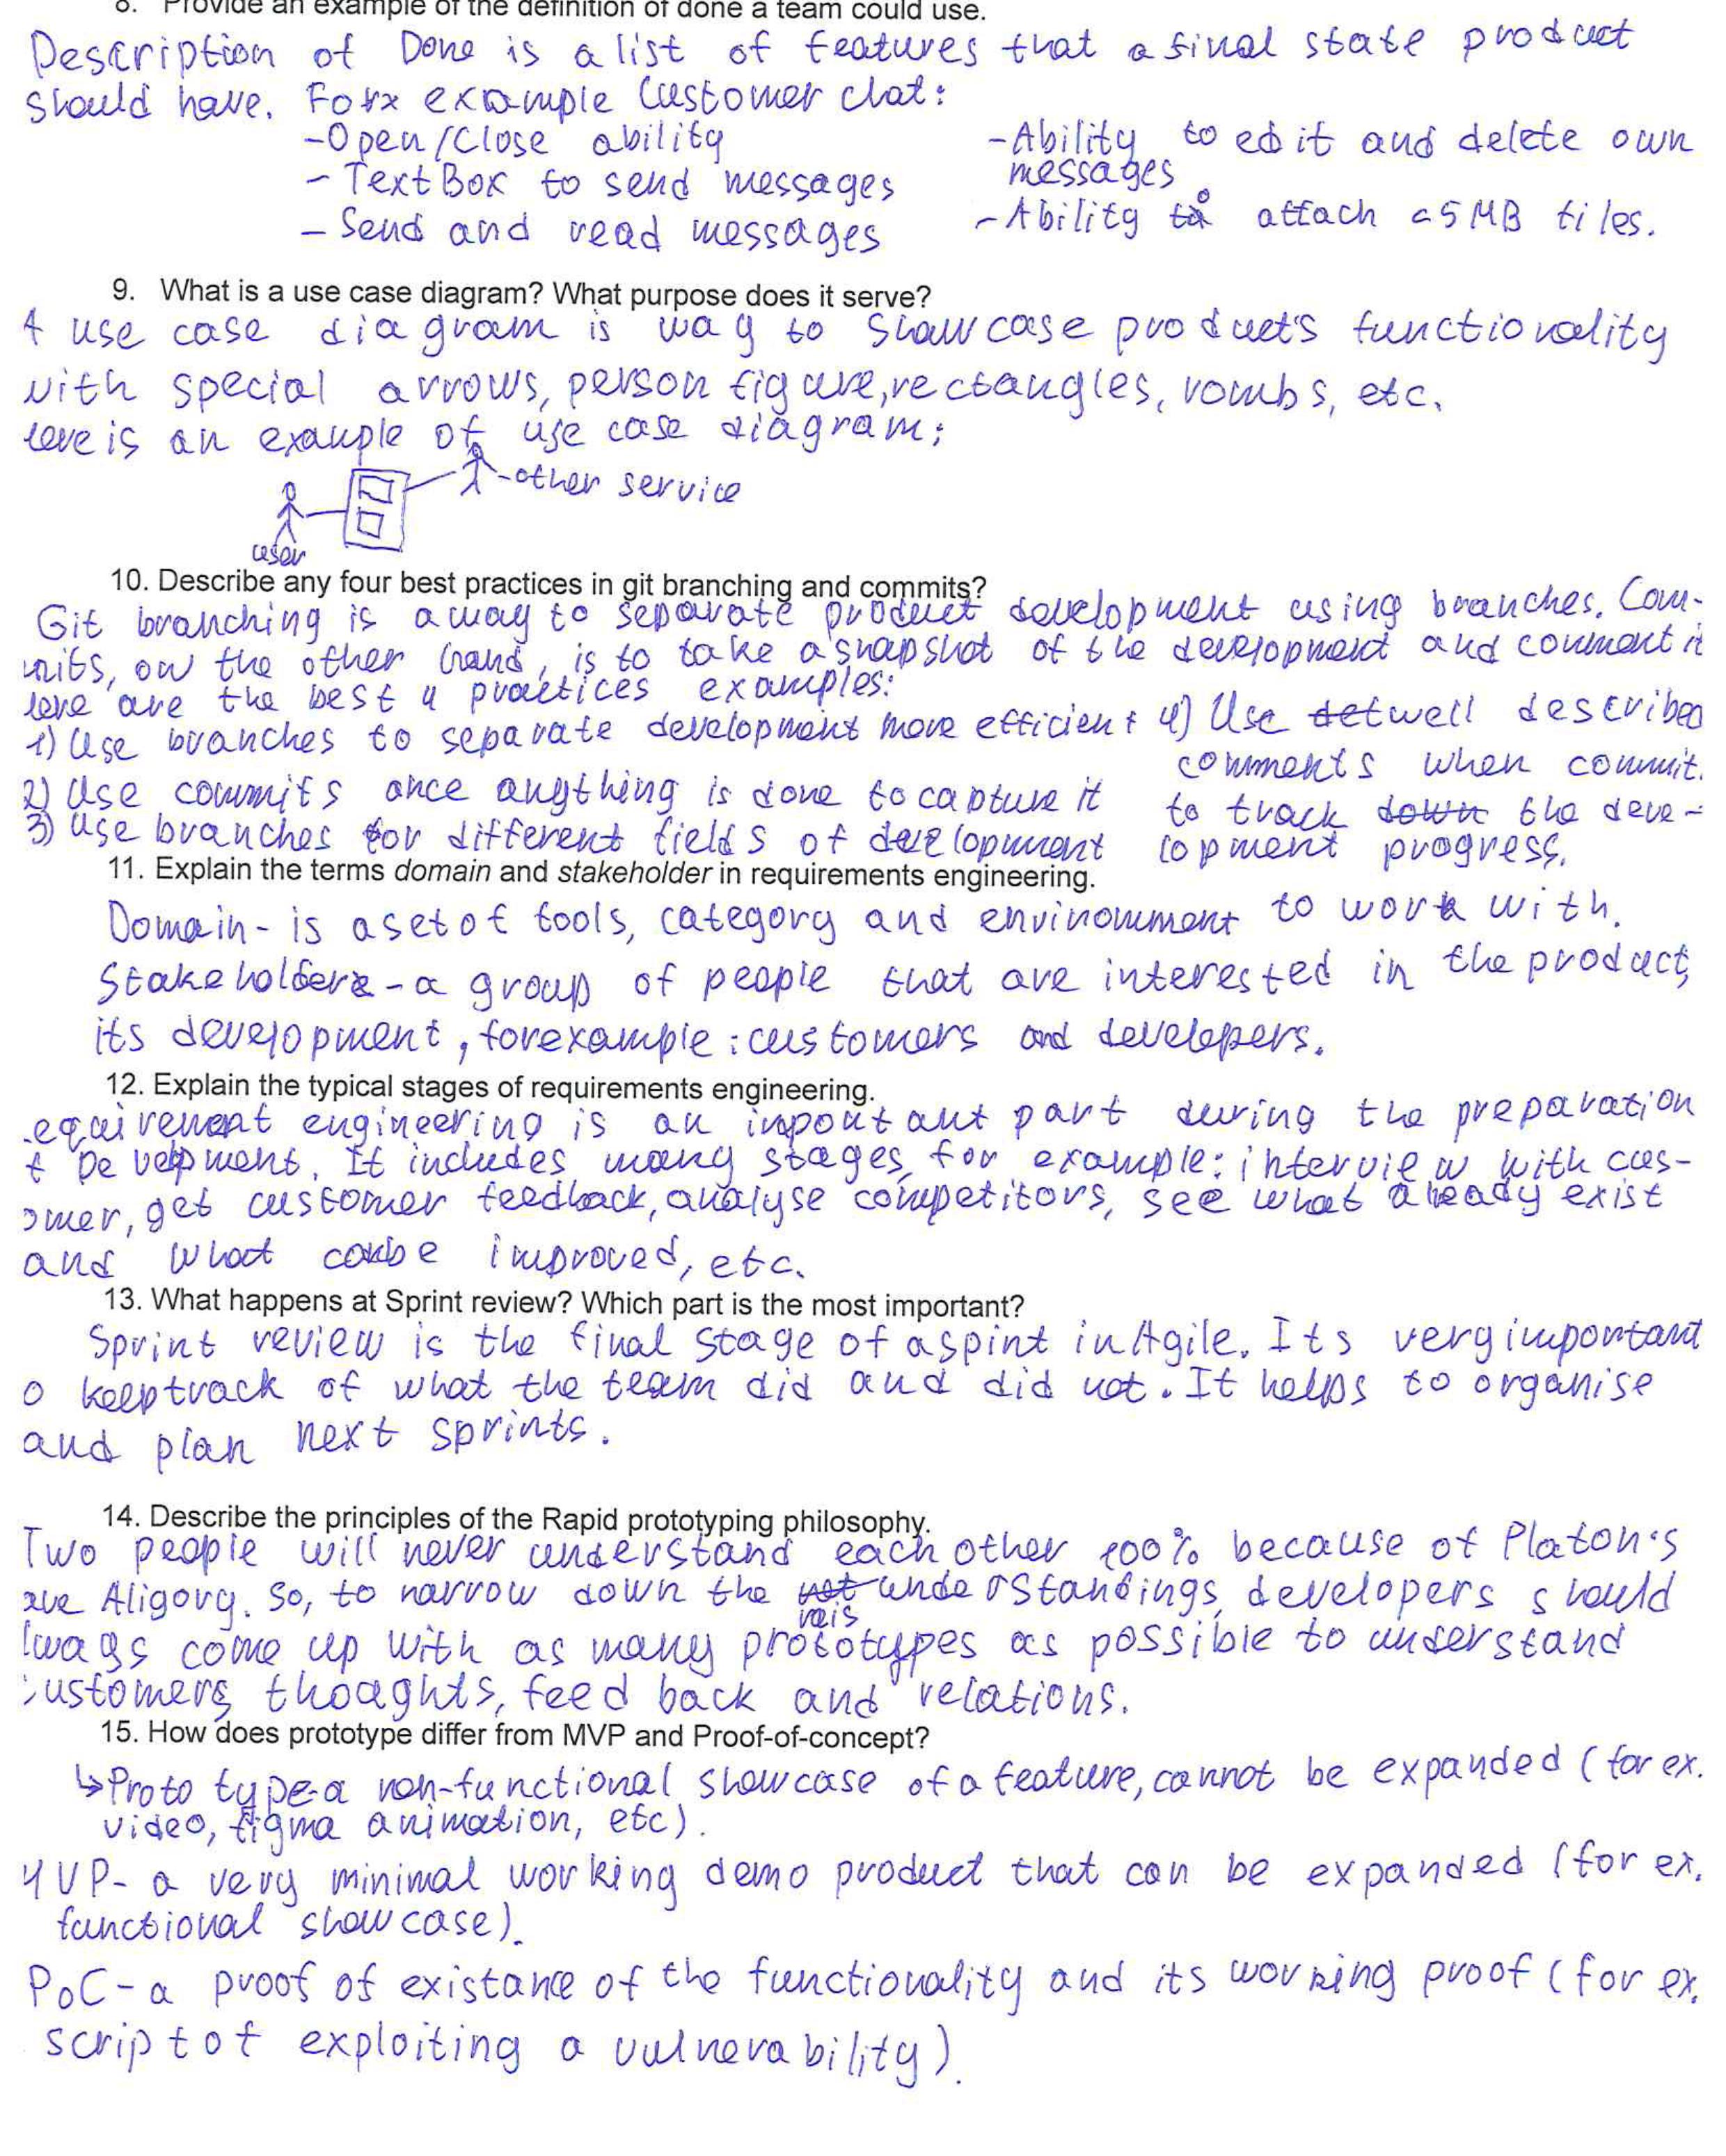 8. Provide an example of the definition of done a team could use.
Description of Done is a list of features that a final state product
should have. For example Customer chat:
- Open/Close ability
- TextBox to send messages
- Send and read messages
- Ability to edit and delete own
messages
- Ability to attach <5MB files.
9. What is a use case diagram? What purpose does it serve?
A use case diagram is way to showcase product's functionality
with special arrows, person figure, rectangles, rombs, etc.
here is an example of use case diagram:
- other service
user
10. Describe any four best practices in git branching and commits?
Git branching is a way to separate product development using branches. Com-
mits, on the other hand, is to take a snapshot of the development and comment it
here are the best 4 practices examples:
1) Use branches to separate development more efficient
2) Use commits once anything is done to capture it
3) Use branches for different fields of development
4) Use well described
comments when commit.
to track down the deve-
lopment progress.
11. Explain the terms domain and stakeholder in requirements engineering.
Domain - is a set of tools, category and envinomment to work with.
Stakeholders - a group of people that are interested in the product,
its development, for example: customers and developers.
12. Explain the typical stages of requirements engineering.
equirement engineering is an inportant part during the preparation
t Development. It includes many stages, for example: interview with cus-
omer, get customer feedback, analyse competitors, see what already exist
and what can be improved, etc.
13. What happens at Sprint review? Which part is the most important?
Sprint review is the final stage of a spint in Agile. Its very important
o keep track of what the team did and did not. It helps to organise
and plan next sprints.
14. Describe the principles of the Rapid prototyping philosophy.
Two people will never understand each other 100% because of Platon's
ave Aligory. So, to narrow down the not mis understandings, developers should
lways come up with as many prototypes as possible to understand
ustomers thoughts, feed back and relations.
15. How does prototype differ from MVP and Proof-of-concept?
↳ Prototype - a non-functional showcase of a feature, cannot be expanded (for ex.
video, figma animation, etc).
MVP - a very minimal working demo product that can be expanded (for ex.
functional showcase).
PoC - a proof of existance of the functionality and its working proof (for ex.
script of exploiting a vulnerability).